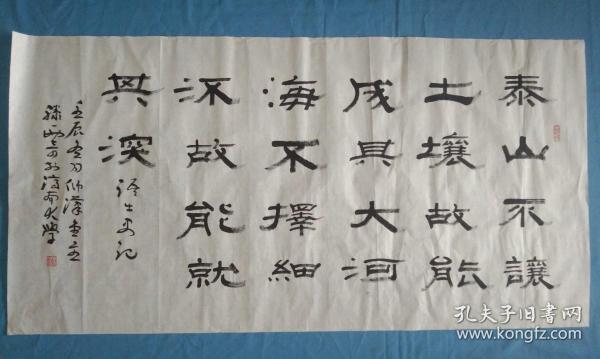 泰山不讓
土壤故能
成其大河
海不擇細
流故能就
其深
語出史記
壬辰
大學
孔夫子旧书网
www.kongfz.com